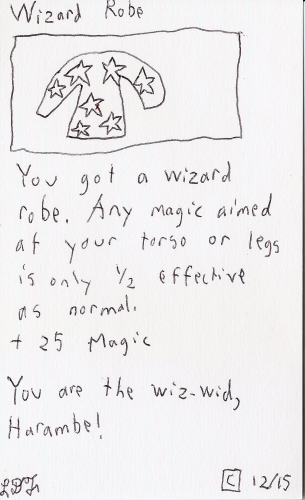 Wizard Robe
You got a wizard
robe. Any magic aimed
at your torso or legs
is only 1/2 effective
as normal.
+ 25 Magic
You are the wiz-wid,
Harambe!
LBJ C 12/15